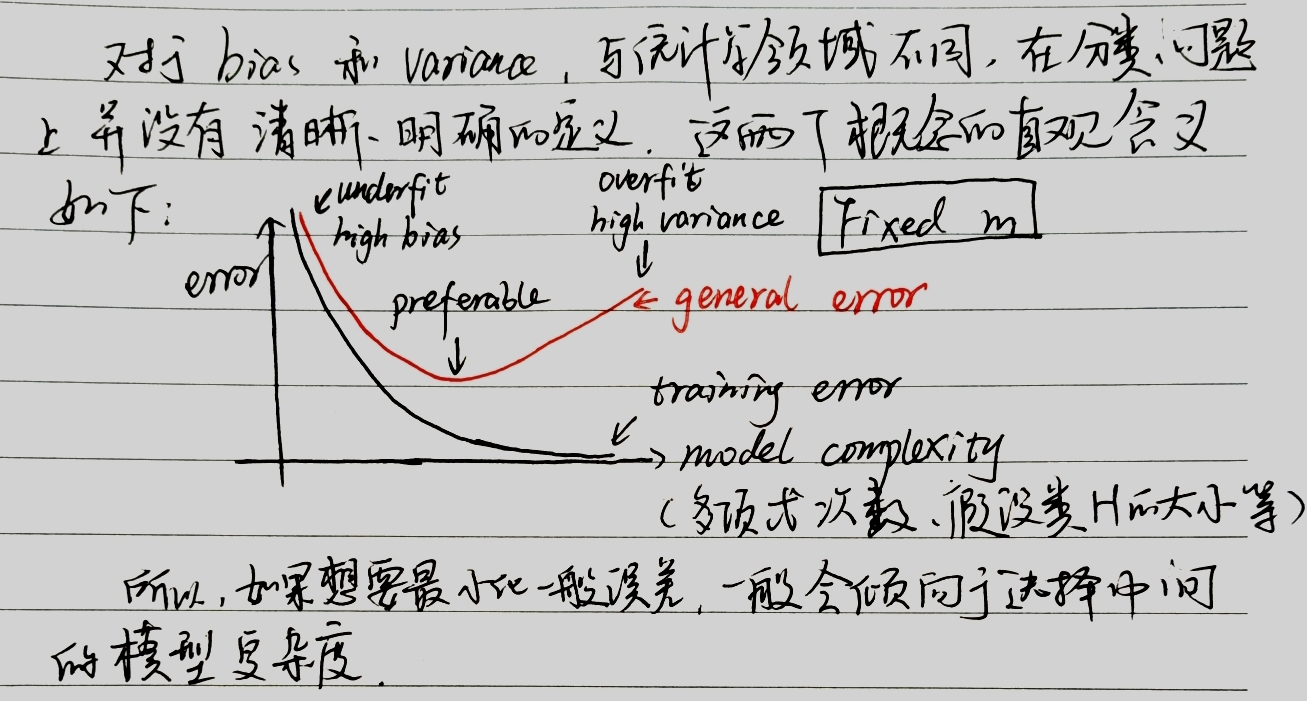 对于 bias 和 variance, 与统计学领域不同, 在分类问题
上并没有清晰、明确的定义. 这两个概念的直观含义
如下:
underfit
high bias
overfit
high variance
Fixed m
error
preferable
general error
training error
model complexity
(多项式次数、假设类H的大小等)
所以, 如果想要最小化一般误差, 一般会倾向于选择中间
的模型复杂度.